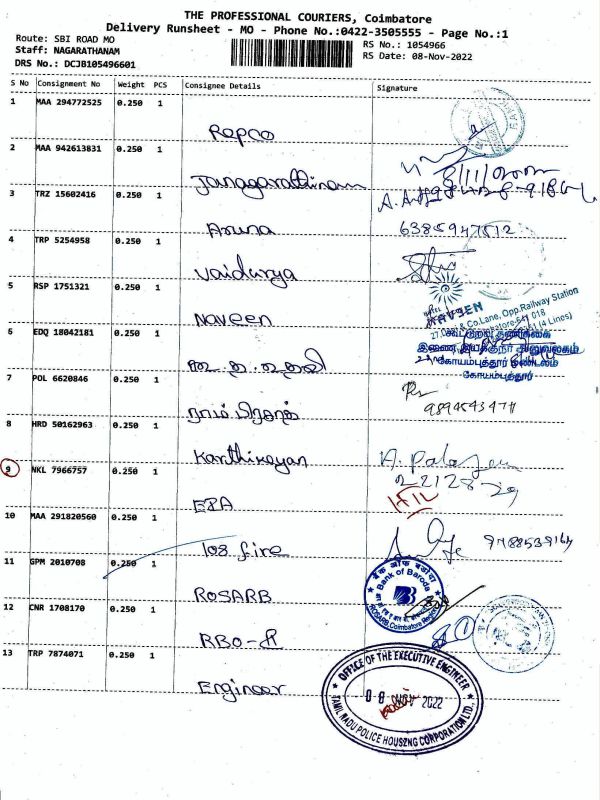 THE PROFESSIONAL COURIERS, Coimbatore
Delivery Runsheet - MO - Phone No.:0422-3505555 - Page No.:1
Route: SBI ROAD MO
RS No.: 1054966
Staff: NAGARATHANAM
RS Date: 08-Nov-2022
DRS No.: DCJB105496601
S No Consignment No Weight PCS Consignee Details Signature
1 MAA 294772525 0.250 1
Repco
2 MAA 942613831 0.250 1
Janagarathinam
3 TRZ 15602416 0.250 1
Aruna 6385947512
4 TRP 5254958 0.250 1
Vaidurya
5 RSP 1751321 0.250 1
Naveen
NAVEEN
& Co.Lane, Opp.Railway Station
641 018
(4 Lines)
6 EDQ 18042181 0.250 1
இணை இயக்குநர் அலுவலகம்
கோயம்புத்தூர் மண்டலம்
கோயம்புத்தூர்
7 POL 6620846 0.250 1
ராம் பிரசாத்
8 HRD 50162963 0.250 1
Karthikeyan
9 NKL 7966757 0.250 1
EPA
10 MAA 291820560 0.250 1
108 fire
11 GPM 2010708 0.250 1
ROSARB
बैंक ऑफ बड़ौदा
Bank of Baroda
ROSARB, Coimbatore Region
12 CNR 1708170 0.250 1
RBO-II
13 TRP 7874071 0.250 1
Engineer
OFFICE OF THE EXECUTIVE ENGINEER
08 NOV 2022
TAMIL NADU POLICE HOUSING CORPORATION LTD.,